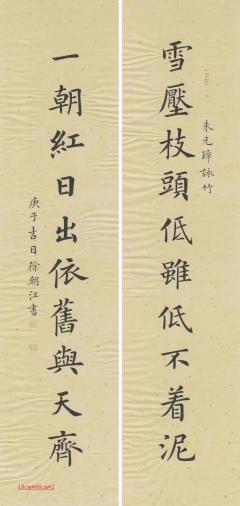 朱元璋詠竹
雪壓枝頭低雖低不着泥
一朝紅日出依舊與天齊
庚子吉日徐朝江書